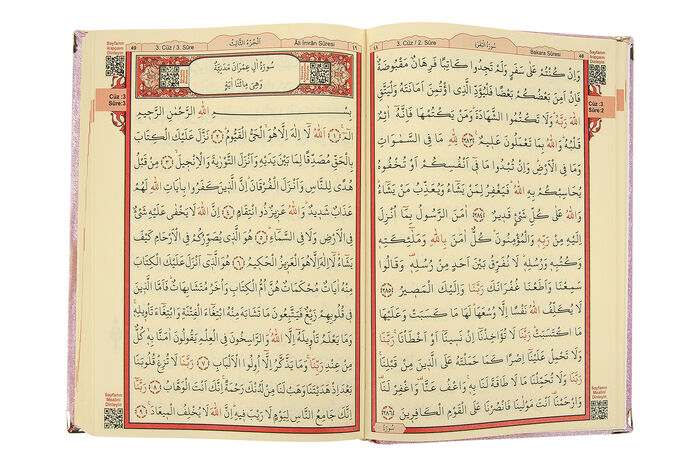 ٤٨
3. Cüz / 2. Sûre
سُورَةُ الْبَقَرَةِ
Bakara Sûresi
48
Sayfanın Arapçasını Dinleyin
Cüz :3
Sûre:2
وَاِنْ كُنْتُمْ عَلٰى سَفَرٍ وَلَمْ تَجِدُوا كَاتِبًا فَرِهَانٌ مَقْبُوضَةٌ
فَاِنْ اَمِنَ بَعْضُكُمْ بَعْضًا فَلْيُؤَدِّ الَّذِي اؤْتُمِنَ اَمَانَتَهُ وَلْيَتَّقِ
اللّٰهَ رَبَّهُ وَلَا تَكْتُمُوا الشَّهَادَةَ وَمَنْ يَكْتُمْهَا فَاِنَّهُ اٰثِمٌ
قَلْبُهُ وَاللّٰهُ بِمَا تَعْمَلُونَ عَلِيمٌ ﴿٢٨٣﴾ لِلّٰهِ مَا فِي السَّمٰوَاتِ
وَمَا فِي الْاَرْضِ وَاِنْ تُبْدُوا مَا فِي اَنْفُسِكُمْ اَوْ تُخْفُوهُ
يُحَاسِبْكُمْ بِهِ اللّٰهُ فَيَغْفِرُ لِمَنْ يَشَاءُ وَيُعَذِّبُ مَنْ يَشَاءُ
وَاللّٰهُ عَلٰى كُلِّ شَيْءٍ قَدِيرٌ ﴿٢٨٤﴾ اٰمَنَ الرَّسُولُ بِمَا اُنْزِلَ
اِلَيْهِ مِنْ رَبِّهِ وَالْمُؤْمِنُونَ كُلٌّ اٰمَنَ بِاللّٰهِ وَمَلٰئِكَتِهِ
وَكُتُبِهِ وَرُسُلِهِ لَا نُفَرِّقُ بَيْنَ اَحَدٍ مِنْ رُسُلِهِ وَقَالُوا
سَمِعْنَا وَاَطَعْنَا غُفْرَانَكَ رَبَّنَا وَاِلَيْكَ الْمَصِيرُ ﴿٢٨٥﴾
لَا يُكَلِّفُ اللّٰهُ نَفْسًا اِلَّا وُسْعَهَا لَهَا مَا كَسَبَتْ وَعَلَيْهَا
مَا اكْتَسَبَتْ رَبَّنَا لَا تُؤَاخِذْنَا اِنْ نَسِينَا اَوْ اَخْطَأْنَا رَبَّنَا
وَلَا تَحْمِلْ عَلَيْنَا اِصْرًا كَمَا حَمَلْتَهُ عَلَى الَّذِينَ مِنْ قَبْلِنَا
رَبَّنَا وَلَا تُحَمِّلْنَا مَا لَا طَاقَةَ لَنَا بِهِ وَاعْفُ عَنَّا وَاغْفِرْ لَنَا
وَارْحَمْنَا اَنْتَ مَوْلٰينَا فَانْصُرْنَا عَلَى الْقَوْمِ الْكَافِرِينَ ﴿٢٨٦﴾
سُورَةُ
Sayfanın Mealini Dinleyin
49
3. Cüz / 3. Sûre
اَلْجُزْءُ الثَّالِثُ
Âli İmrân Sûresi
٤٩
Sayfanın Arapçasını Dinleyin
Cüz :3
Sûre:3
سُورَةُ اٰلِ عِمْرَانَ مَدَنِيَّةٌ
وَهِيَ مِائَتَا اٰيَةٍ
بِسْمِ اللّٰهِ الرَّحْمٰنِ الرَّحِيمِ
الٓمٓ ﴿١﴾ اَللّٰهُ لَا اِلٰهَ اِلَّا هُوَ الْحَيُّ الْقَيُّومُ ﴿٢﴾ نَزَّلَ عَلَيْكَ الْكِتَابَ
بِالْحَقِّ مُصَدِّقًا لِمَا بَيْنَ يَدَيْهِ وَاَنْزَلَ التَّوْرٰيةَ وَالْاِنْجِيلَ ﴿٣﴾ مِنْ قَبْلُ
هُدًى لِلنَّاسِ وَاَنْزَلَ الْفُرْقَانَ اِنَّ الَّذِينَ كَفَرُوا بِاٰيَاتِ اللّٰهِ لَهُمْ
عَذَابٌ شَدِيدٌ وَاللّٰهُ عَزِيزٌ ذُو انْتِقَامٍ ﴿٤﴾ اِنَّ اللّٰهَ لَا يَخْفٰى عَلَيْهِ شَيْءٌ
فِي الْاَرْضِ وَلَا فِي السَّمَاءِ ﴿٥﴾ هُوَ الَّذِي يُصَوِّرُكُمْ فِي الْاَرْحَامِ كَيْفَ
يَشَاءُ لَا اِلٰهَ اِلَّا هُوَ الْعَزِيزُ الْحَكِيمُ ﴿٦﴾ هُوَ الَّذِي اَنْزَلَ عَلَيْكَ الْكِتَابَ
مِنْهُ اٰيَاتٌ مُحْكَمَاتٌ هُنَّ اُمُّ الْكِتَابِ وَاُخَرُ مُتَشَابِهَاتٌ فَاَمَّا الَّذِينَ
فِي قُلُوبِهِمْ زَيْغٌ فَيَتَّبِعُونَ مَا تَشَابَهَ مِنْهُ ابْتِغَاءَ الْفِتْنَةِ وَابْتِغَاءَ تَأْوِيلِهِ
وَمَا يَعْلَمُ تَأْوِيلَهُ اِلَّا اللّٰهُ وَالرَّاسِخُونَ فِي الْعِلْمِ يَقُولُونَ اٰمَنَّا بِهِ كُلٌّ
مِنْ عِنْدِ رَبِّنَا وَمَا يَذَّكَّرُ اِلَّا اُولُوا الْاَلْبَابِ ﴿٧﴾ رَبَّنَا لَا تُزِغْ قُلُوبَنَا
بَعْدَ اِذْ هَدَيْتَنَا وَهَبْ لَنَا مِنْ لَدُنْكَ رَحْمَةً اِنَّكَ اَنْتَ الْوَهَّابُ ﴿٨﴾ رَبَّنَا
اِنَّكَ جَامِعُ النَّاسِ لِيَوْمٍ لَا رَيْبَ فِيهِ اِنَّ اللّٰهَ لَا يُخْلِفُ الْمِيعَادَ ﴿٩﴾
Sayfanın Mealini Dinleyin